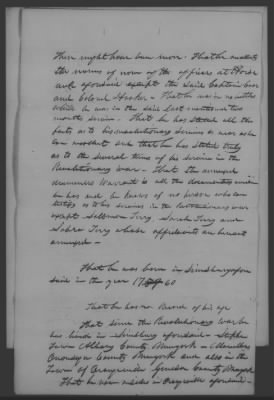 There might have been more. That he recollects
the names of none of the officers at
except the said Captain
and Colonel Hooker – That he was in no battles
while he was in this said last mentioned two
months service. That he has stated all the
facts as to his revolutionary services as near as he
can recollect and that he has stated truly
as to the several terms of his service in the
Revolutionary war – That the annexed
drummers warrant is all the documentary evidence
he has and he knows of no person who can
testify as to his services in the Revolutionary war
except Solomon Terry Sarah Terry and
Terry whose affidavits are hereunto
annexed –
That he was born in Simsbury afore
said in the year 1760
That he has no Record of his age
That since the Revolutionary war he
has lived in Simsbury aforesaid –
Town Albany County Newyork –
Onondaga County Newyork and also in the
Town of Genesee County Newyork
That he now resides in aforesaid –